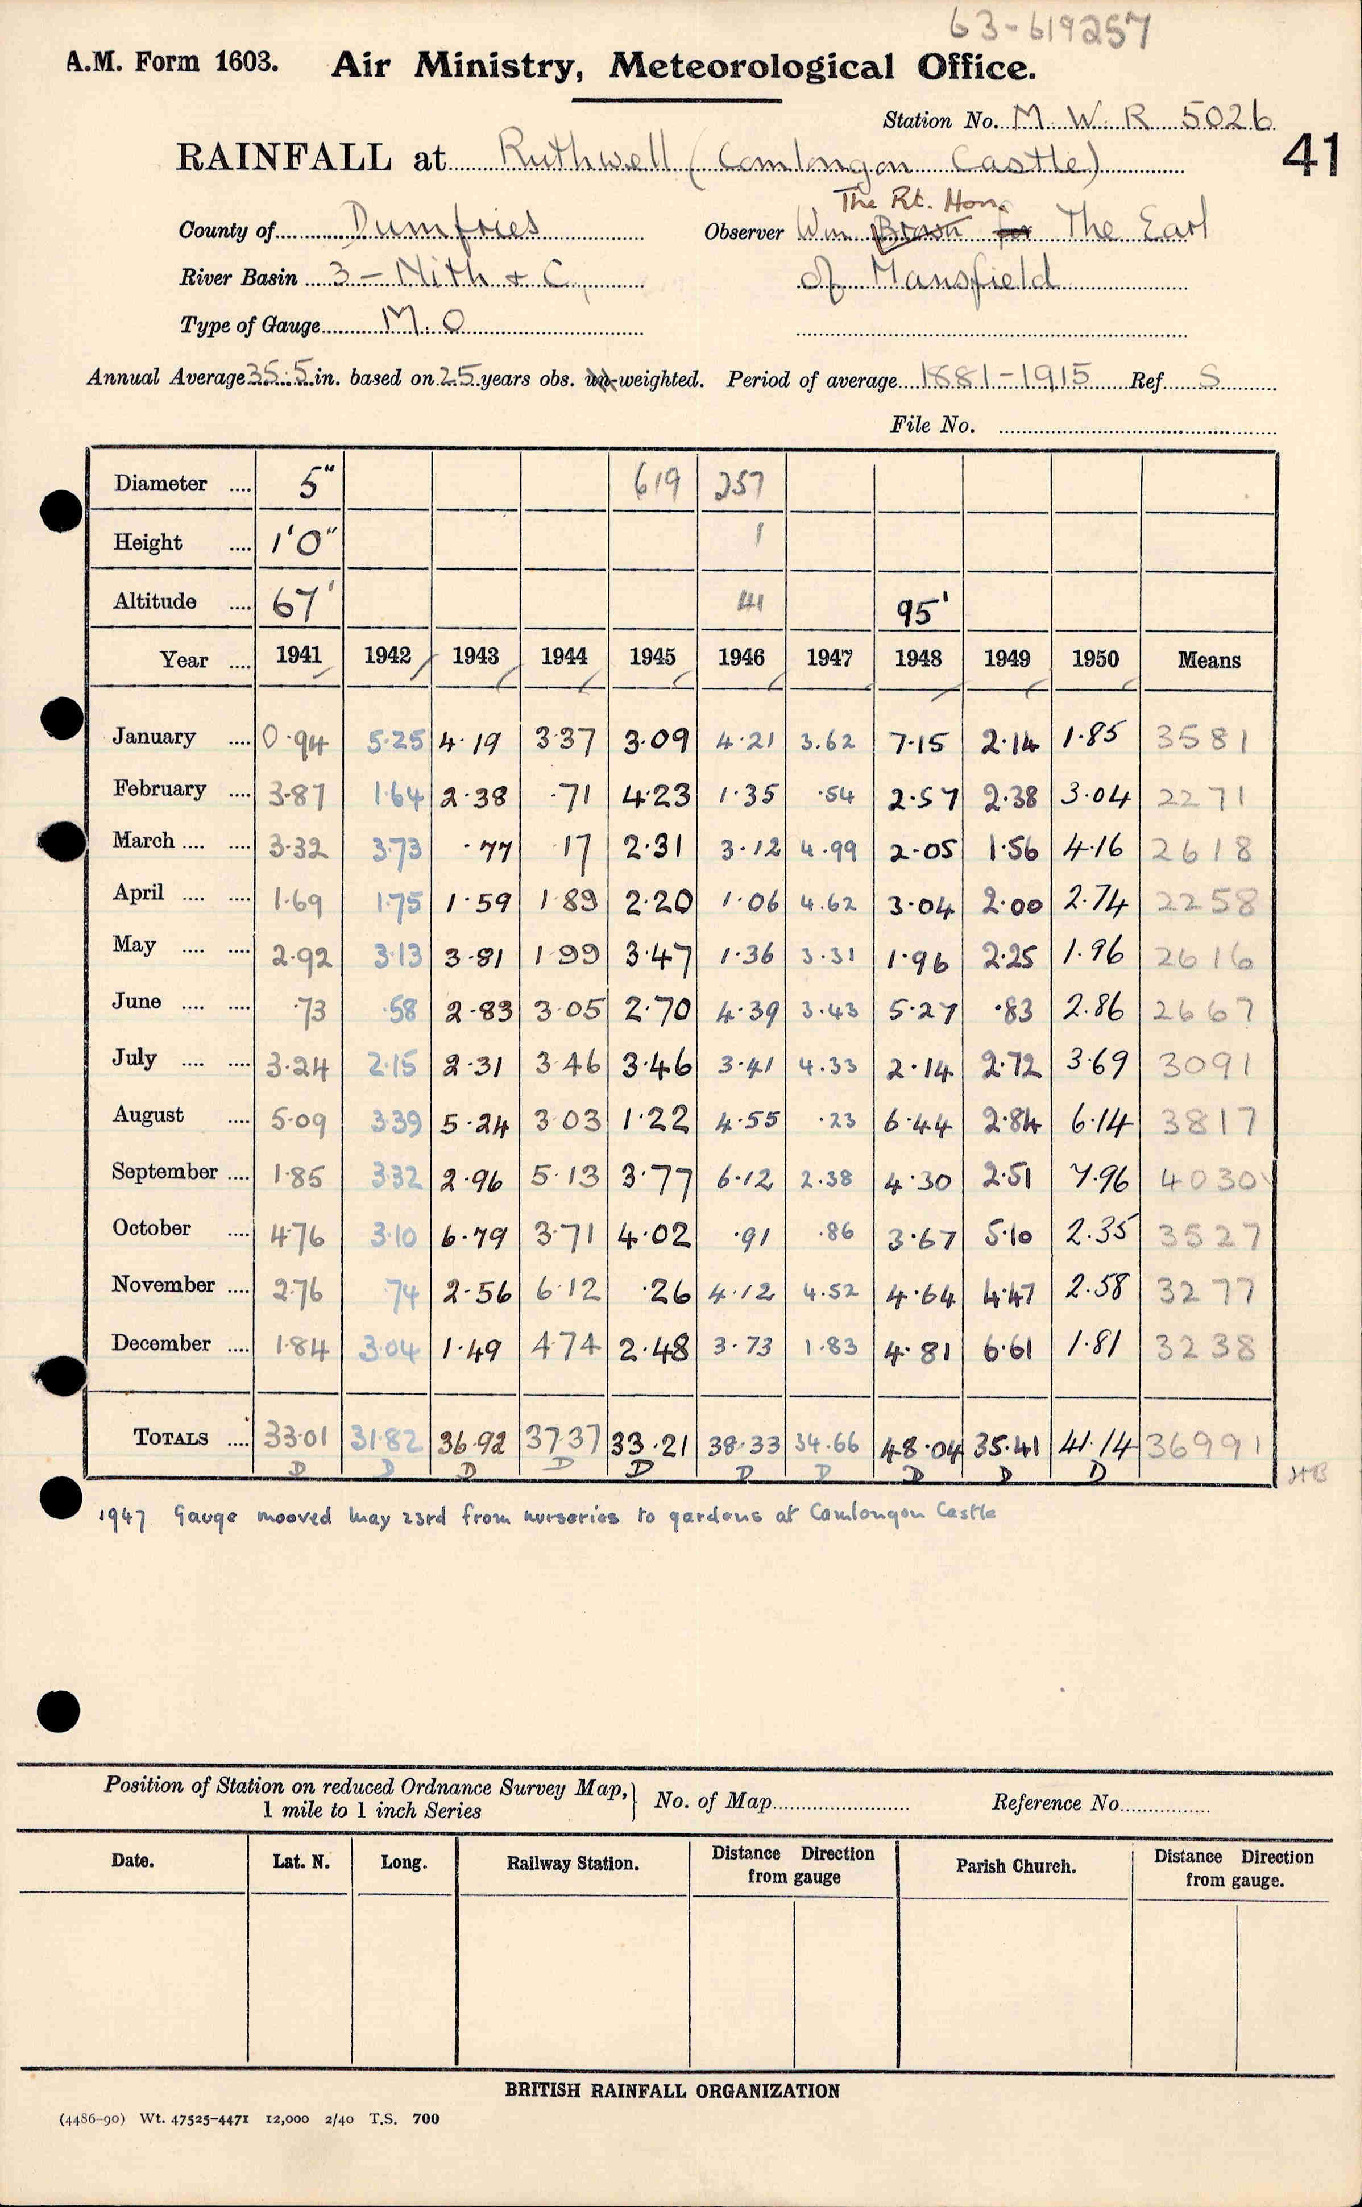 63-619257
A.M. Form 1603. Air Ministry, Meteorological Office.
Station No. M.W.R 5026
41
RAINFALL at Ruthwell (Comlongon Castle)
The Rt. Hon.
County of Dumfries Observer Wm Brown for The Earl
River Basin 3 - Nith & C. of Mansfield
Type of Gauge M.O
Annual Average 35.5 in. based on 25 years obs. un-weighted. Period of average 1881-1915 Ref S
File No.
Diameter .... 5" 619 257
Height .... 1'0" 1
Altitude .... 67' 41 95'
Year .... 1941 1942 1943 1944 1945 1946 1947 1948 1949 1950 Means
January .... 0.94 5.25 4.19 3.37 3.09 4.21 3.62 7.15 2.14 1.85 3581
February .... 3.87 1.64 2.38 .71 4.23 1.35 .54 2.57 2.38 3.04 2271
March .... .... 3.32 3.73 .77 .17 2.31 3.12 4.99 2.05 1.56 4.16 2618
April .... .... 1.69 1.75 1.59 1.89 2.20 1.06 4.62 3.04 2.00 2.74 2258
May .... .... 2.92 3.13 3.81 1.99 3.47 1.36 3.31 1.96 2.25 1.96 2616
June .... .... .73 .58 2.83 3.05 2.70 4.39 3.43 5.27 .83 2.86 2667
July .... .... 3.24 2.15 2.31 3.46 3.46 3.41 4.33 2.14 2.72 3.69 3091
August .... 5.09 3.39 5.24 3.03 1.22 4.55 .23 6.44 2.84 6.14 3817
September .... 1.85 3.32 2.96 5.13 3.77 6.12 2.38 4.30 2.51 7.96 4030
October .... 4.76 3.10 6.79 3.71 4.02 .91 .86 3.67 5.10 2.35 3527
November .... 2.76 .74 2.56 6.12 .26 4.12 4.52 4.64 4.47 2.58 3277
December .... 1.84 3.04 1.49 4.74 2.48 3.73 1.83 4.81 6.61 1.81 3238
TOTALS .... 33.01 31.82 36.92 37.37 33.21 38.33 34.66 48.04 35.41 41.14 36991
D D D D D D D D D D HB
1947 Gauge mooved May 23rd from nurseries to gardens at Comlongon Castle
Position of Station on reduced Ordnance Survey Map, 1 mile to 1 inch Series No. of Map Reference No.
Date. Lat. N. Long. Railway Station. Distance Direction from gauge Parish Church. Distance Direction from gauge.
BRITISH RAINFALL ORGANIZATION
(4486-90) Wt. 47525-4471 12,000 2/40 T.S. 700